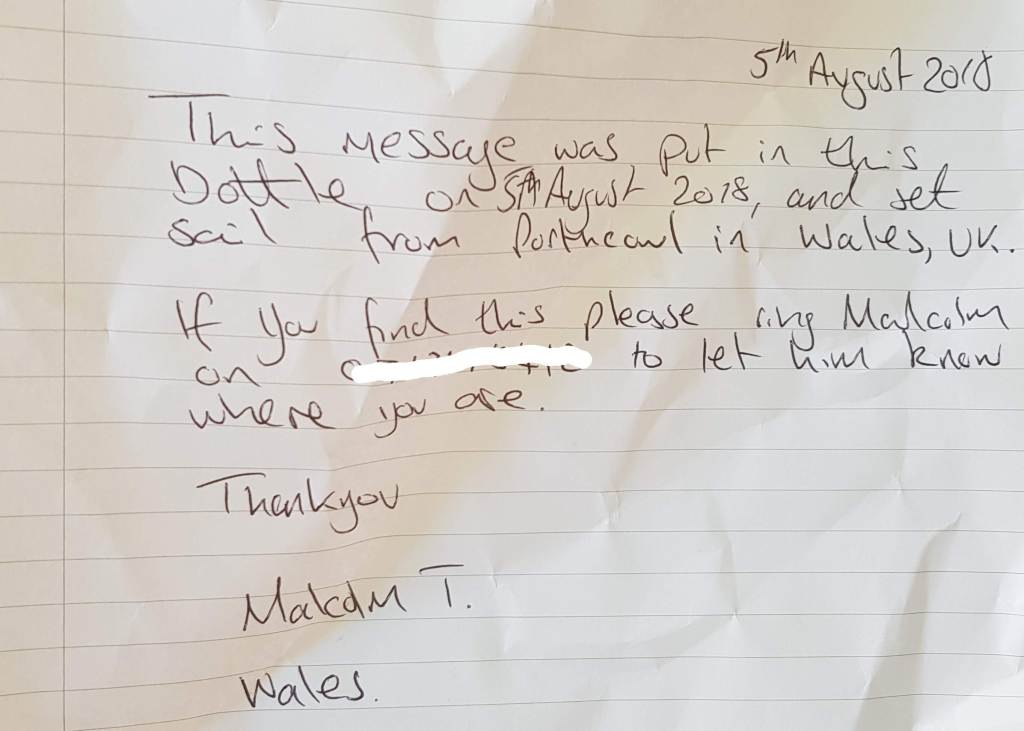 5th August 2018
This message was put in this
Bottle, on 5th August 2018, and set
sail from Porthcawl in Wales, UK.
If you find this please ring Malcolm
on to let him know
where you are.
Thankyou
Malcolm T.
Wales.